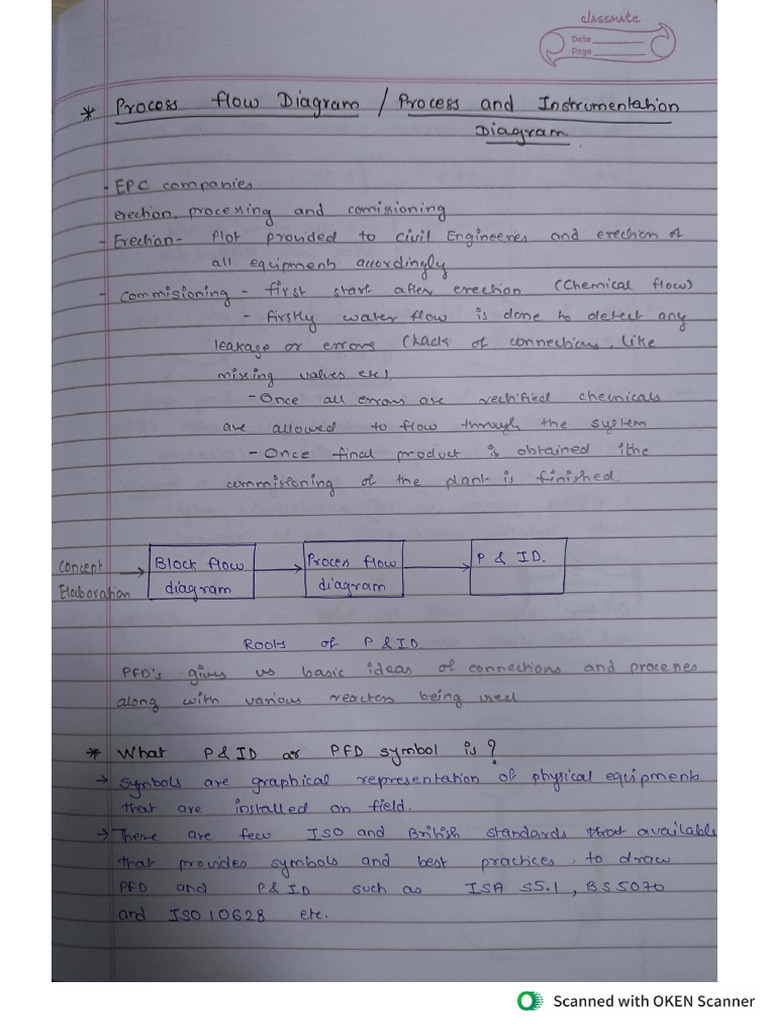 classmate
Date
Page
* Process flow Diagram / Process and Instrumentation
Diagram.
- EPC companies
erection, processing and comissioning
- Erection - Plot provided to civil Engineeres and erection of
all equipments accordingly
- Commisioning - first start after erection (Chemical flow)
- Firstly water flow is done to detect any
leakage or errors (Lack of connections, like
mixing valves etc).
- Once all errors are rectified chemicals
are allowed to flow through the system
- Once final product is obtained the
commisioning of the plant is finished.
Concept
Elaboration
Block flow
diagram
Process flow
diagram
P & ID.
Roots of P & ID.
PFD's gives us basic ideas of connections and processes
along with various reacters being used
* What P & ID or PFD symbol is?
→ Symbols are graphical representation of physical equipments
that are installed on field.
→ There are few ISO and British standards that available
that provides symbols and best practices, to draw
PFD and P & ID such as ISA S5.1, BS5070
and ISO 10628 etc.
Scanned with OKEN Scanner